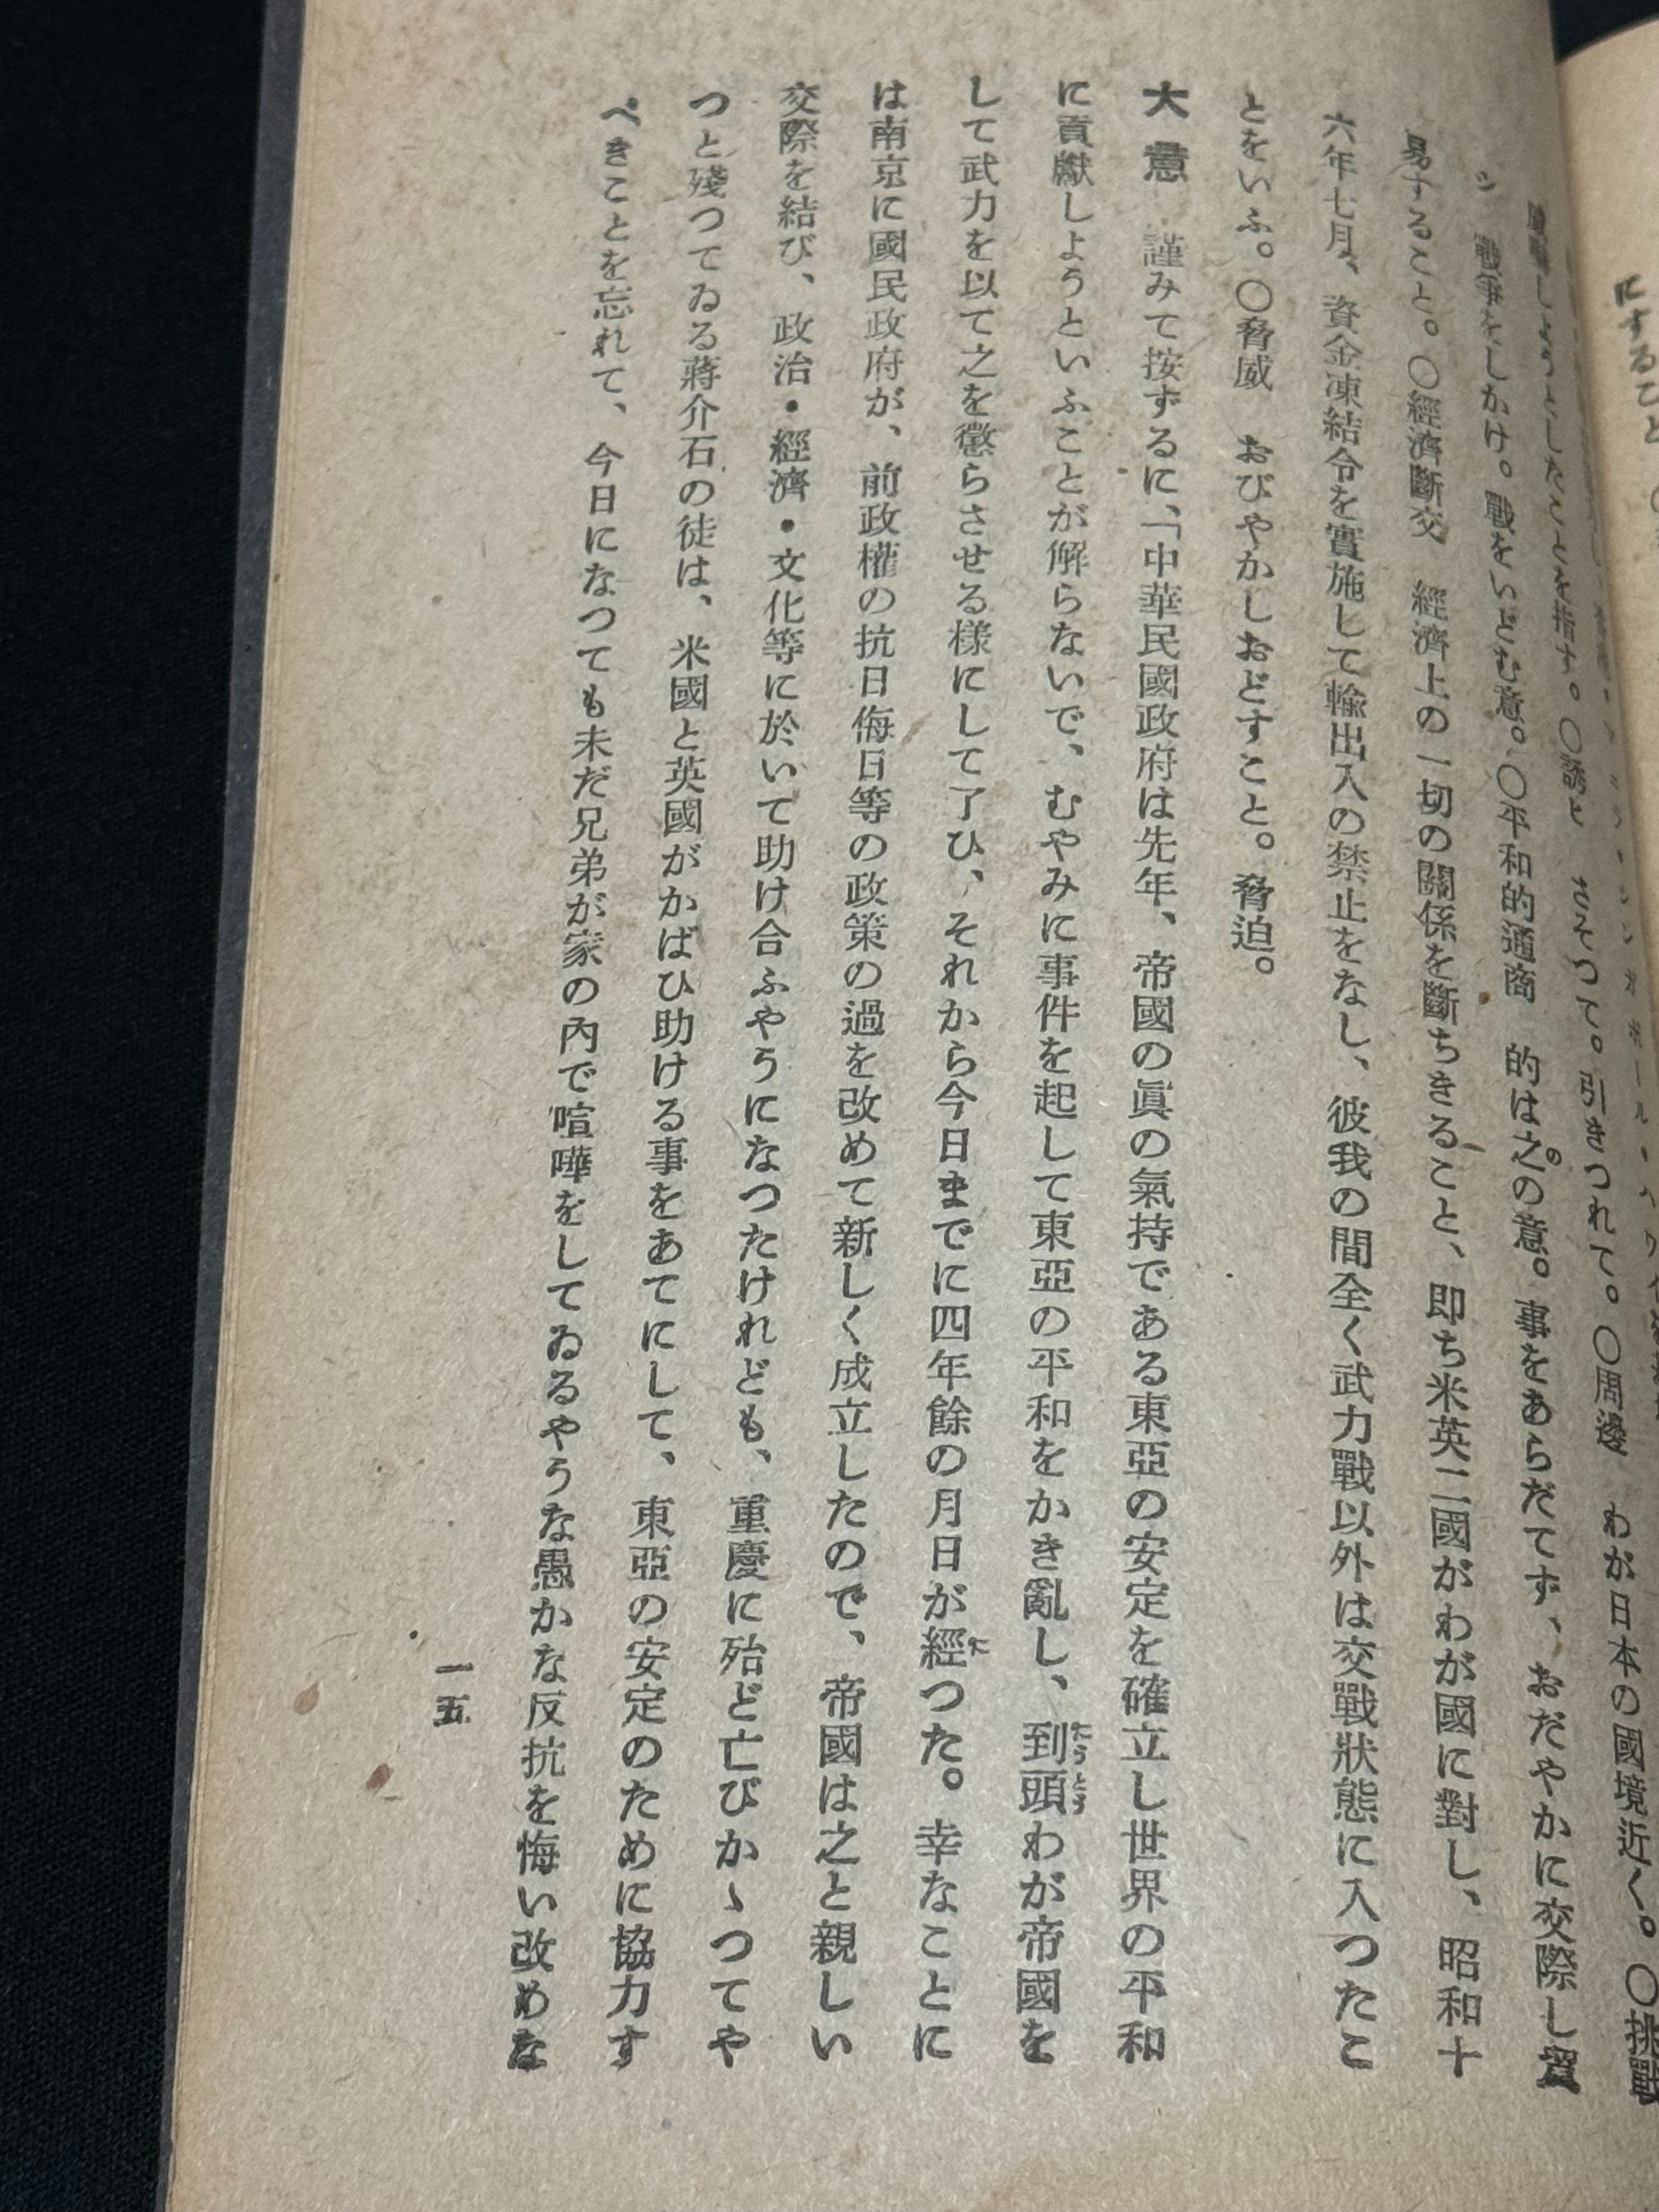 にすること
わが日本の國境近く。〇挑戰
しようとしたことを指す。〇誘ヒ　さそつて。引きつれて。〇周邊
シ　戰爭をしかけ。戰をいどむ意。〇平和的通商　的は之の意。事をあらだてず、おだやかに交際し貿
易すること。〇經濟斷交　經濟上の一切の關係を斷ちきること、即ち米英二國がわが國に對し、昭和十
六年七月、資金凍結令を實施して輸出入の禁止をなし、彼我の間全く武力戰以外は交戰狀態に入つたこ
とをいふ。〇脅威　おびやかしおどすこと。脅迫。
大意　謹みて按ずるに、「中華民國政府は先年、帝國の眞の氣持である東亞の安定を確立し世界の平和
に貢獻しようといふことが解らないで、むやみに事件を起して東亞の平和をかき亂し、到頭わが帝國を
して武力を以て之を懲らさせる樣にして了ひ、それから今日までに四年餘の月日が經つた。幸なことに
は南京に國民政府が、前政權の抗日侮日等の政策の過を改めて新しく成立したので、帝國は之と親しい
交際を結び、政治・經濟・文化等に於いて助け合ふやうになつたけれども、重慶に殆ど亡びかゝつてや
つと殘つてゐる蔣介石の徒は、米國と英國がかばひ助ける事をあてにして、東亞の安定のために協力す
べきことを忘れて、今日になつても未だ兄弟が家の內で喧嘩をしてゐるやうな愚かな反抗を悔い改めな
一五